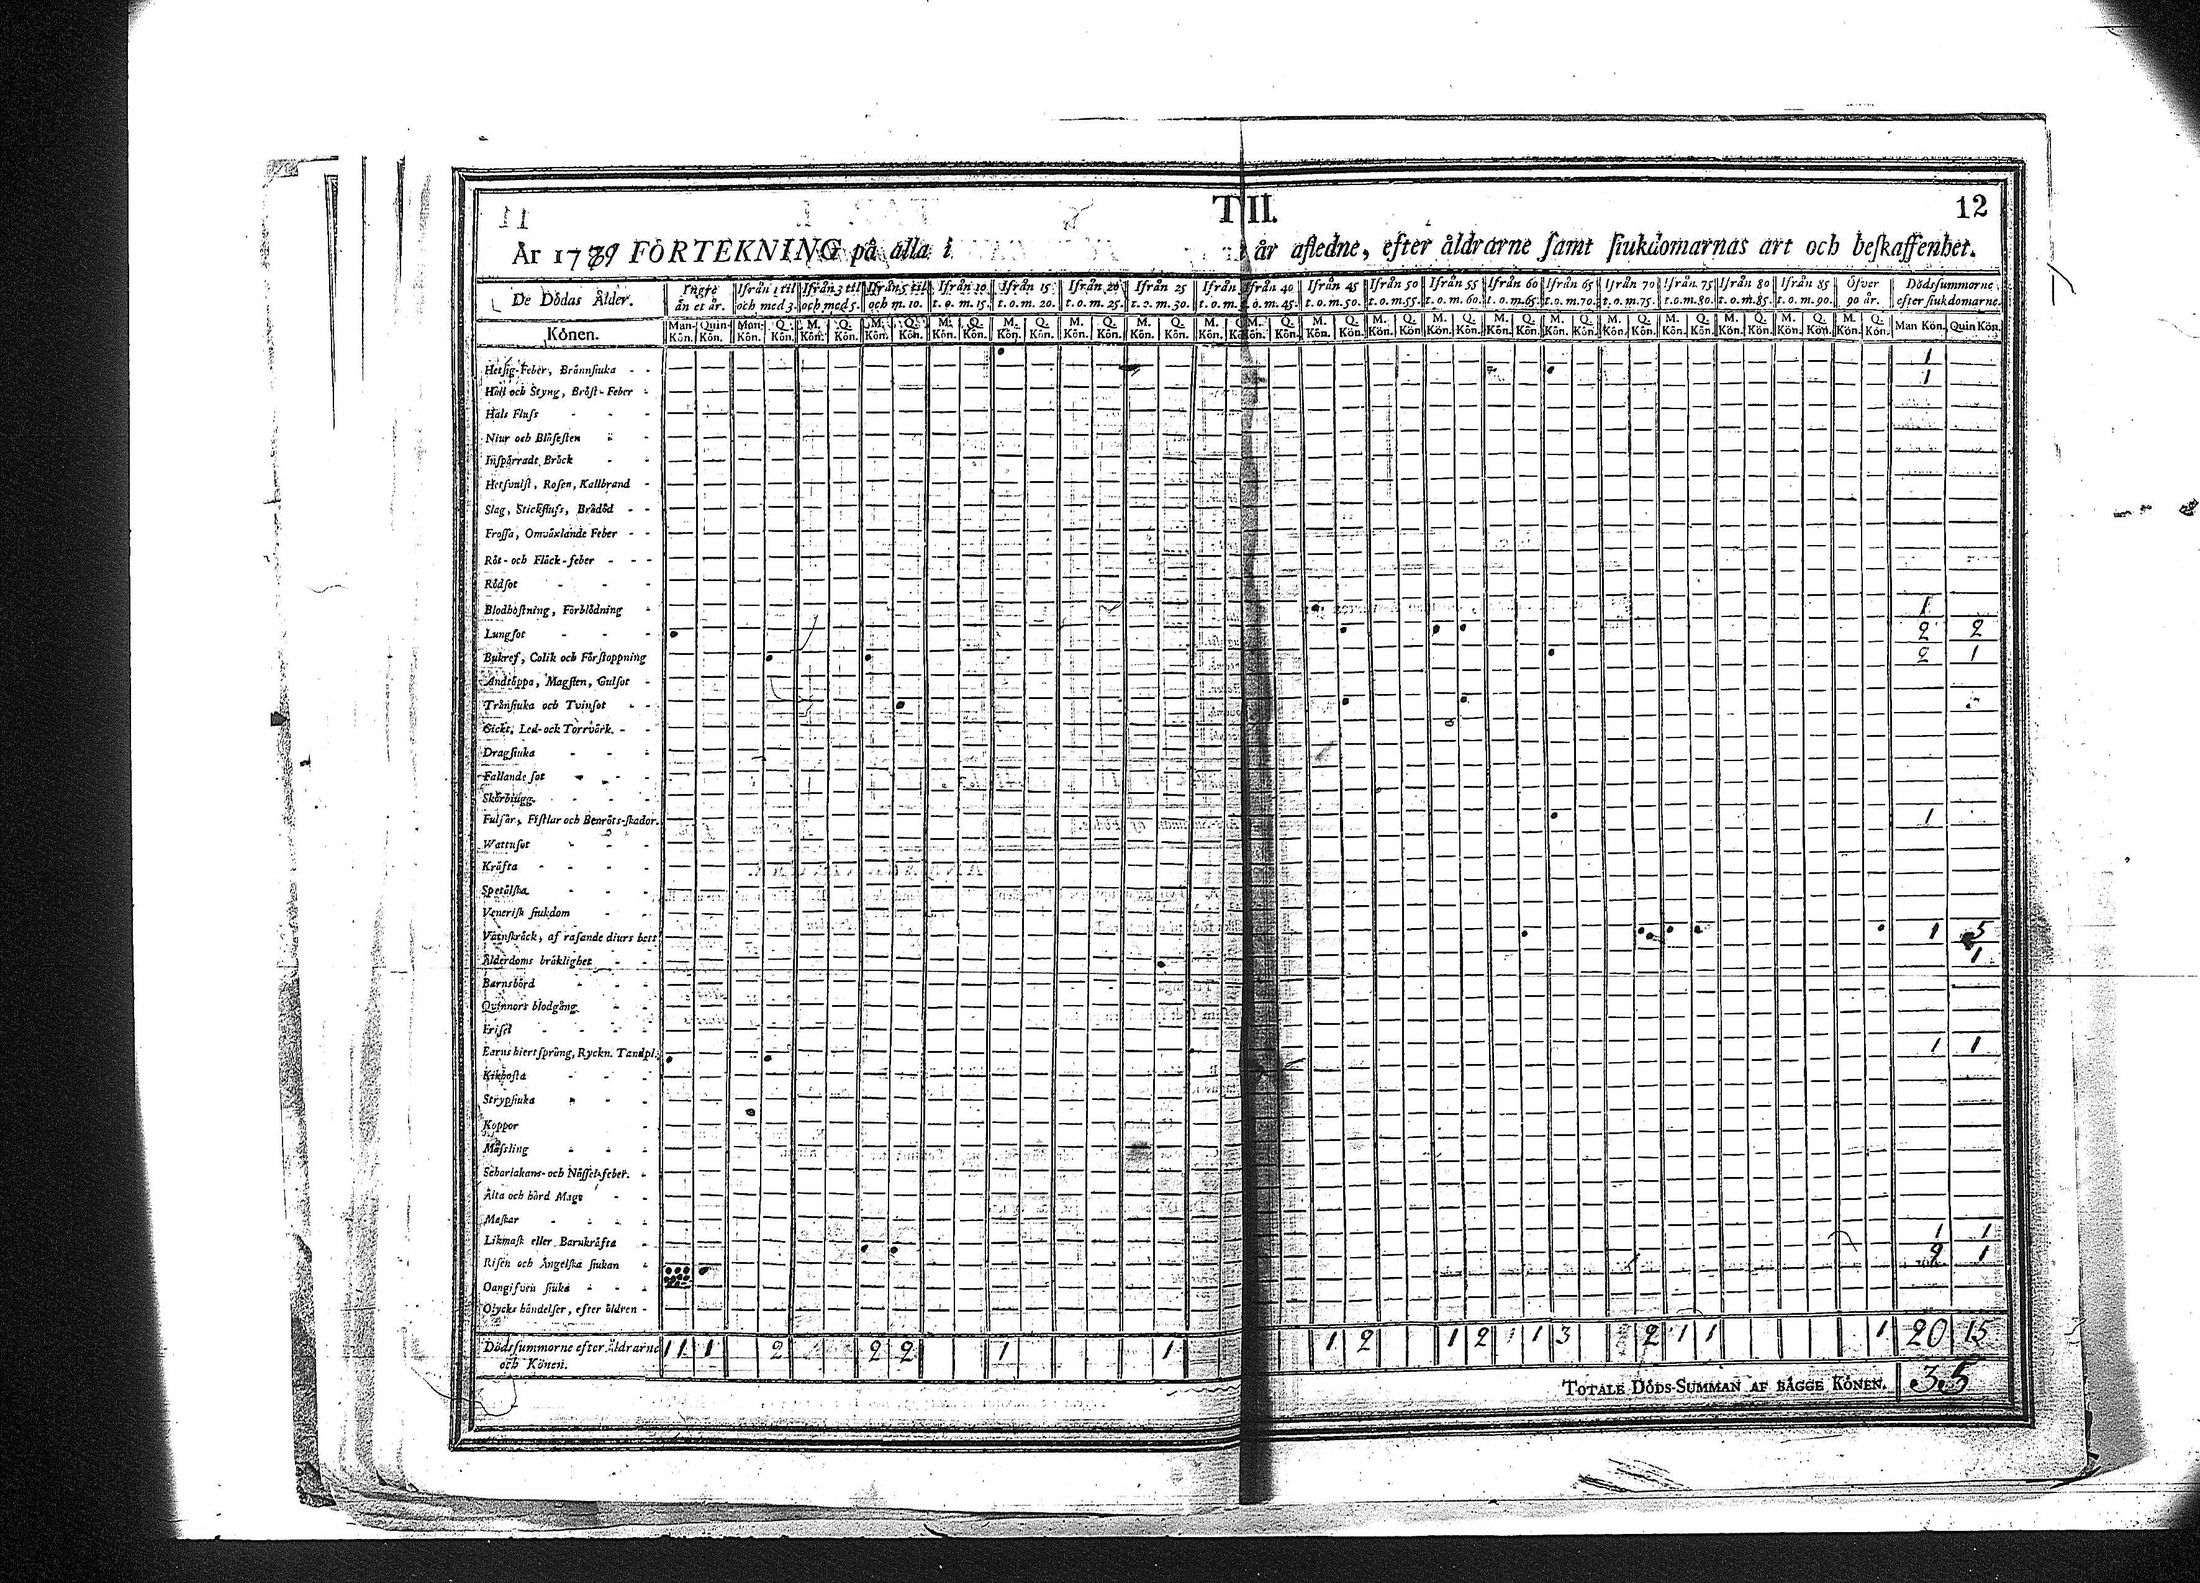 T II.
12
År 1779 FÖRTEKNING på alla i år afledne, efter åldrarne ſamt ſiukdomarnas art och beſkaffenhet.
De Dödas Ålder. Yngre än et år. Ifrån 1 til och med 3. Ifrån 3 til och med 5. Ifrån 5 til och m. 10. Ifrån 10 t. o. m. 15. Ifrån 15 t. o. m. 20. Ifrån 20 t. o. m. 25. Ifrån 25 t. o. m. 30. Ifrån t. o. m. Ifrån 40 t. o. m. 45. Ifrån 45 t. o. m. 50. Ifrån 50 t. o. m. 55. Ifrån 55 t. o. m. 60. Ifrån 60 t. o. m. 65. Ifrån 65 t. o. m. 70. Ifrån 70 t. o. m. 75. Ifrån 75 t. o. m. 80. Ifrån 80 t. o. m. 85. Ifrån 85 t. o. m. 90. Öfver 90 år. Dödsſummorne efter ſiukdomarne.
Könen. Man-Kön. Quin-Kön. Man-Kön. Q. Kön. M. Kön. Q. Kön. M. Kön. Q. Kön. M. Kön. Q. Kön. M. Kön. Q. Kön. M. Kön. Q. Kön. M. Kön. Q. Kön. M. Kön. Q. Kön. M. Kön. Q. Kön. M. Kön. Q. Kön. M. Kön. Q. Kön. M. Kön. Q. Kön. M. Kön. Q. Kön. M. Kön. Q. Kön. M. Kön. Q. Kön. M. Kön. Q. Kön. M. Kön. Q. Kön. M. Kön. Q. Kön. M. Kön. Q. Kön. Man Kön. Quin Kön.
Hetſig-Feber, Brännſiuka - - 1
Håll och Styng, Bröſt-Feber - 1
Hals Fluſs - - -
Niur och Blåſeſten - -
Inſpärradt Bråck - -
Hetſvulſt, Roſen, Kallbrand -
Slag, Stickfluſs, Brådöd - -
Froſſa, Omväxlande Feber - -
Röt- och Fläck-feber - - -
Rödſot - - -
Blodhoſtning, Förblödning - 1
Lungſot - - - 2 2
Bukref, Colik och Förſtoppning 2 1
Andtäppa, Magſten, Gulſot -
Trånſiuka och Tvinſot - -
Gickt, Led- ock Torrvärk. - -
Dragſiuka - - -
Fallande ſot - - -
Skörbiugg. - - -
Fulſår, Fiſtlar och Benröts-ſkador. 1
Wattuſot - - -
Kräfta - - - -
Spetälſka - - -
Veneriſk ſiukdom - -
Vatnſkräck, af raſande diurs bett 1 5
Ålderdoms bräklighet - - 1
Barnsbörd - - -
Quinnors blodgång - -
Friſel - - - -
Barns hiertſprång, Ryckn. Tandpl. 1 1
Kikhoſta - - -
Strypſiuka - - -
Koppor -
Mäſsling - - -
Scharlakans- och Näſſel-feber. -
Älta och hård Mage - -
Maſkar - - - -
Likmaſk eller Barnkräfta - 1 1
Riſen och Ängelſka ſiukan - 2 1
Oangifven ſiuka - - -
Olycks händelſer, efter åldren -
Dödsſummorne efter åldrarne och Könen. 11 1 2 2 2 1 1 1 2 1 2 1 3 2 1 1 1 20 15
TOTALE DÖDS-SUMMAN AF BÄGGE KÖNEN. 35